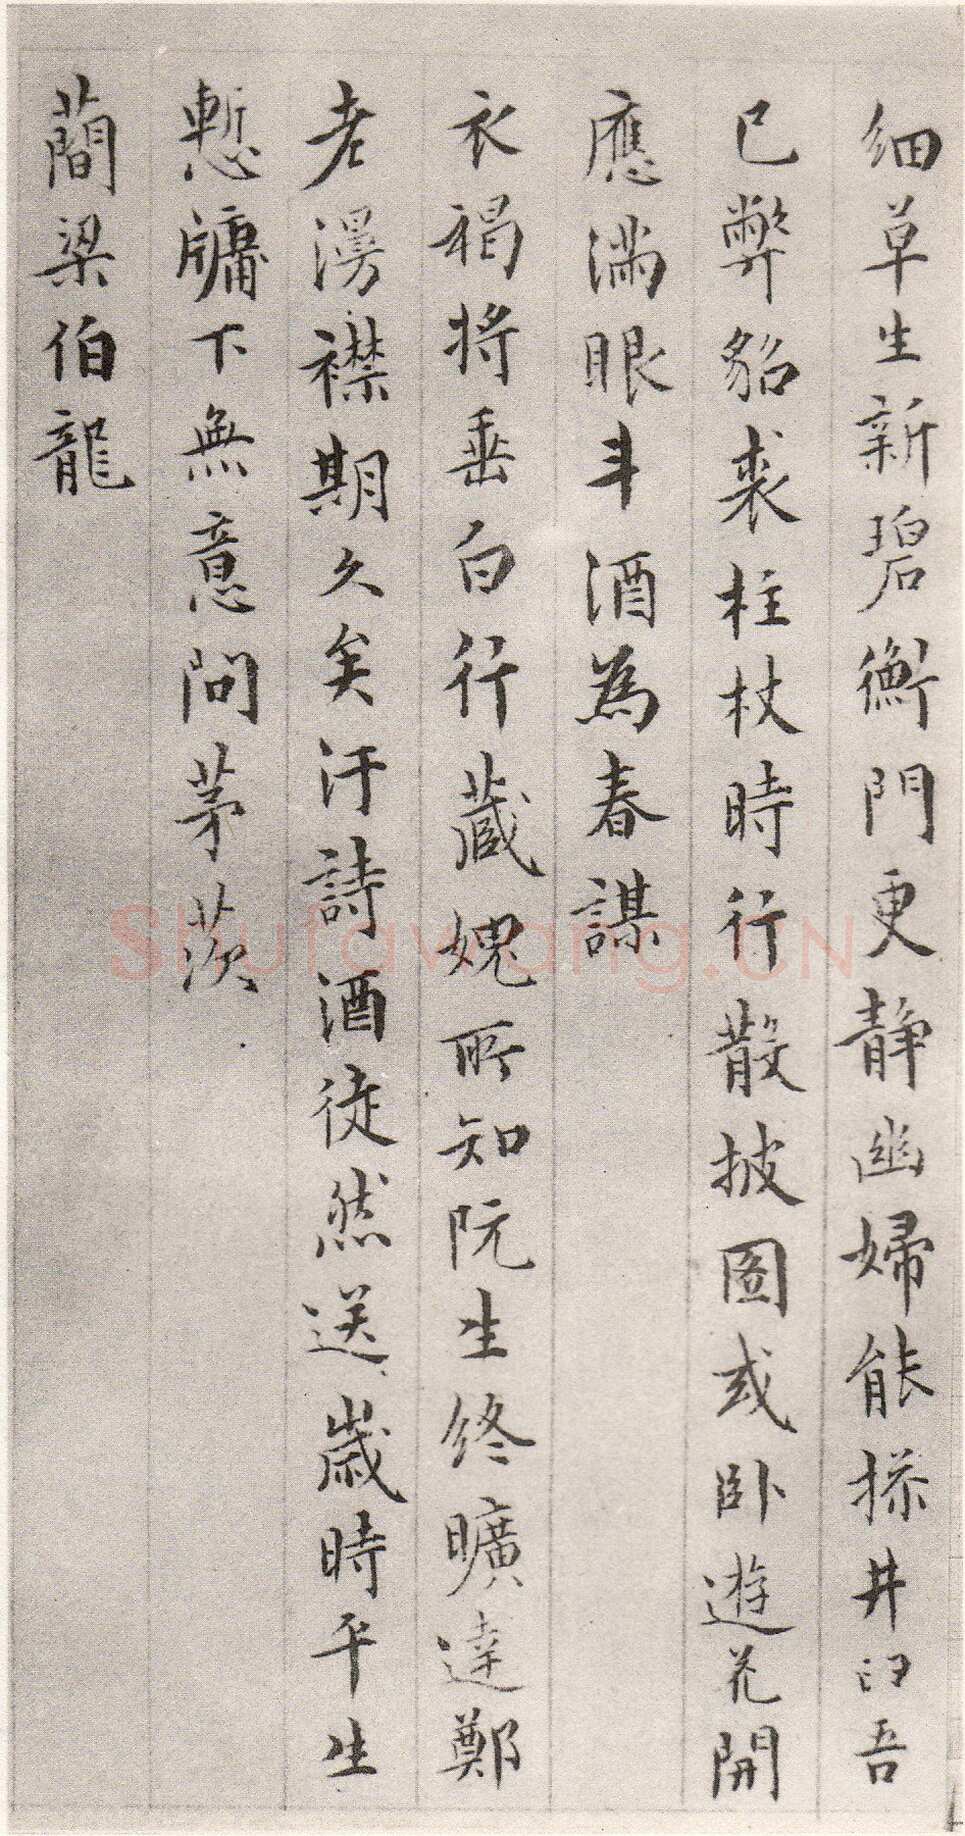 细草生新碧衡門更静幽婦能採井臼吾
已弊貂裘柱杖時行散披图或卧遊花開
應满眼斗酒為春謀
衣褐将垂白行蔵媿所知阮生终曠達鄭
老漫襟期久矣汗詩酒徒然送歳時平生
慙牗下無意问茅茨
蕳梁伯龍
Shufawang.CN